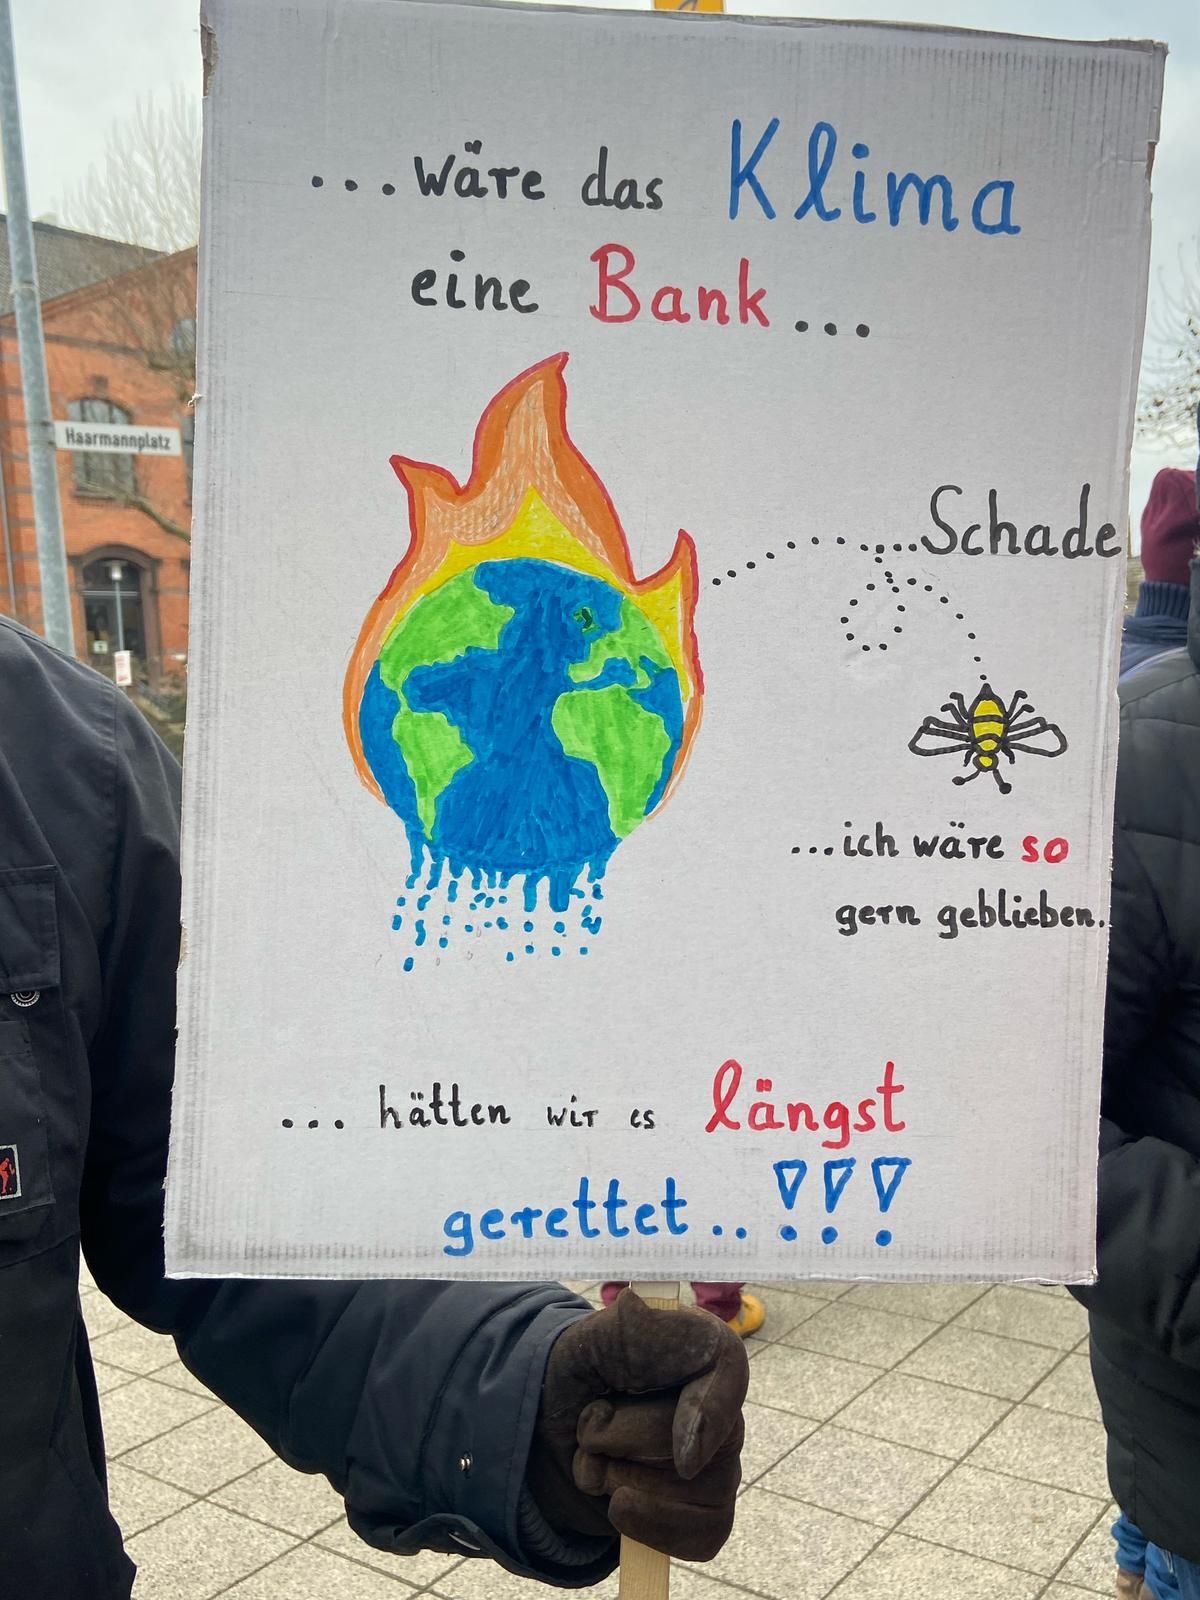 ...wäre das Klima
eine Bank...
Haarmannplatz
...Schade
...ich wäre so
gern geblieben.
... hätten wir es längst
gerettet..!!!